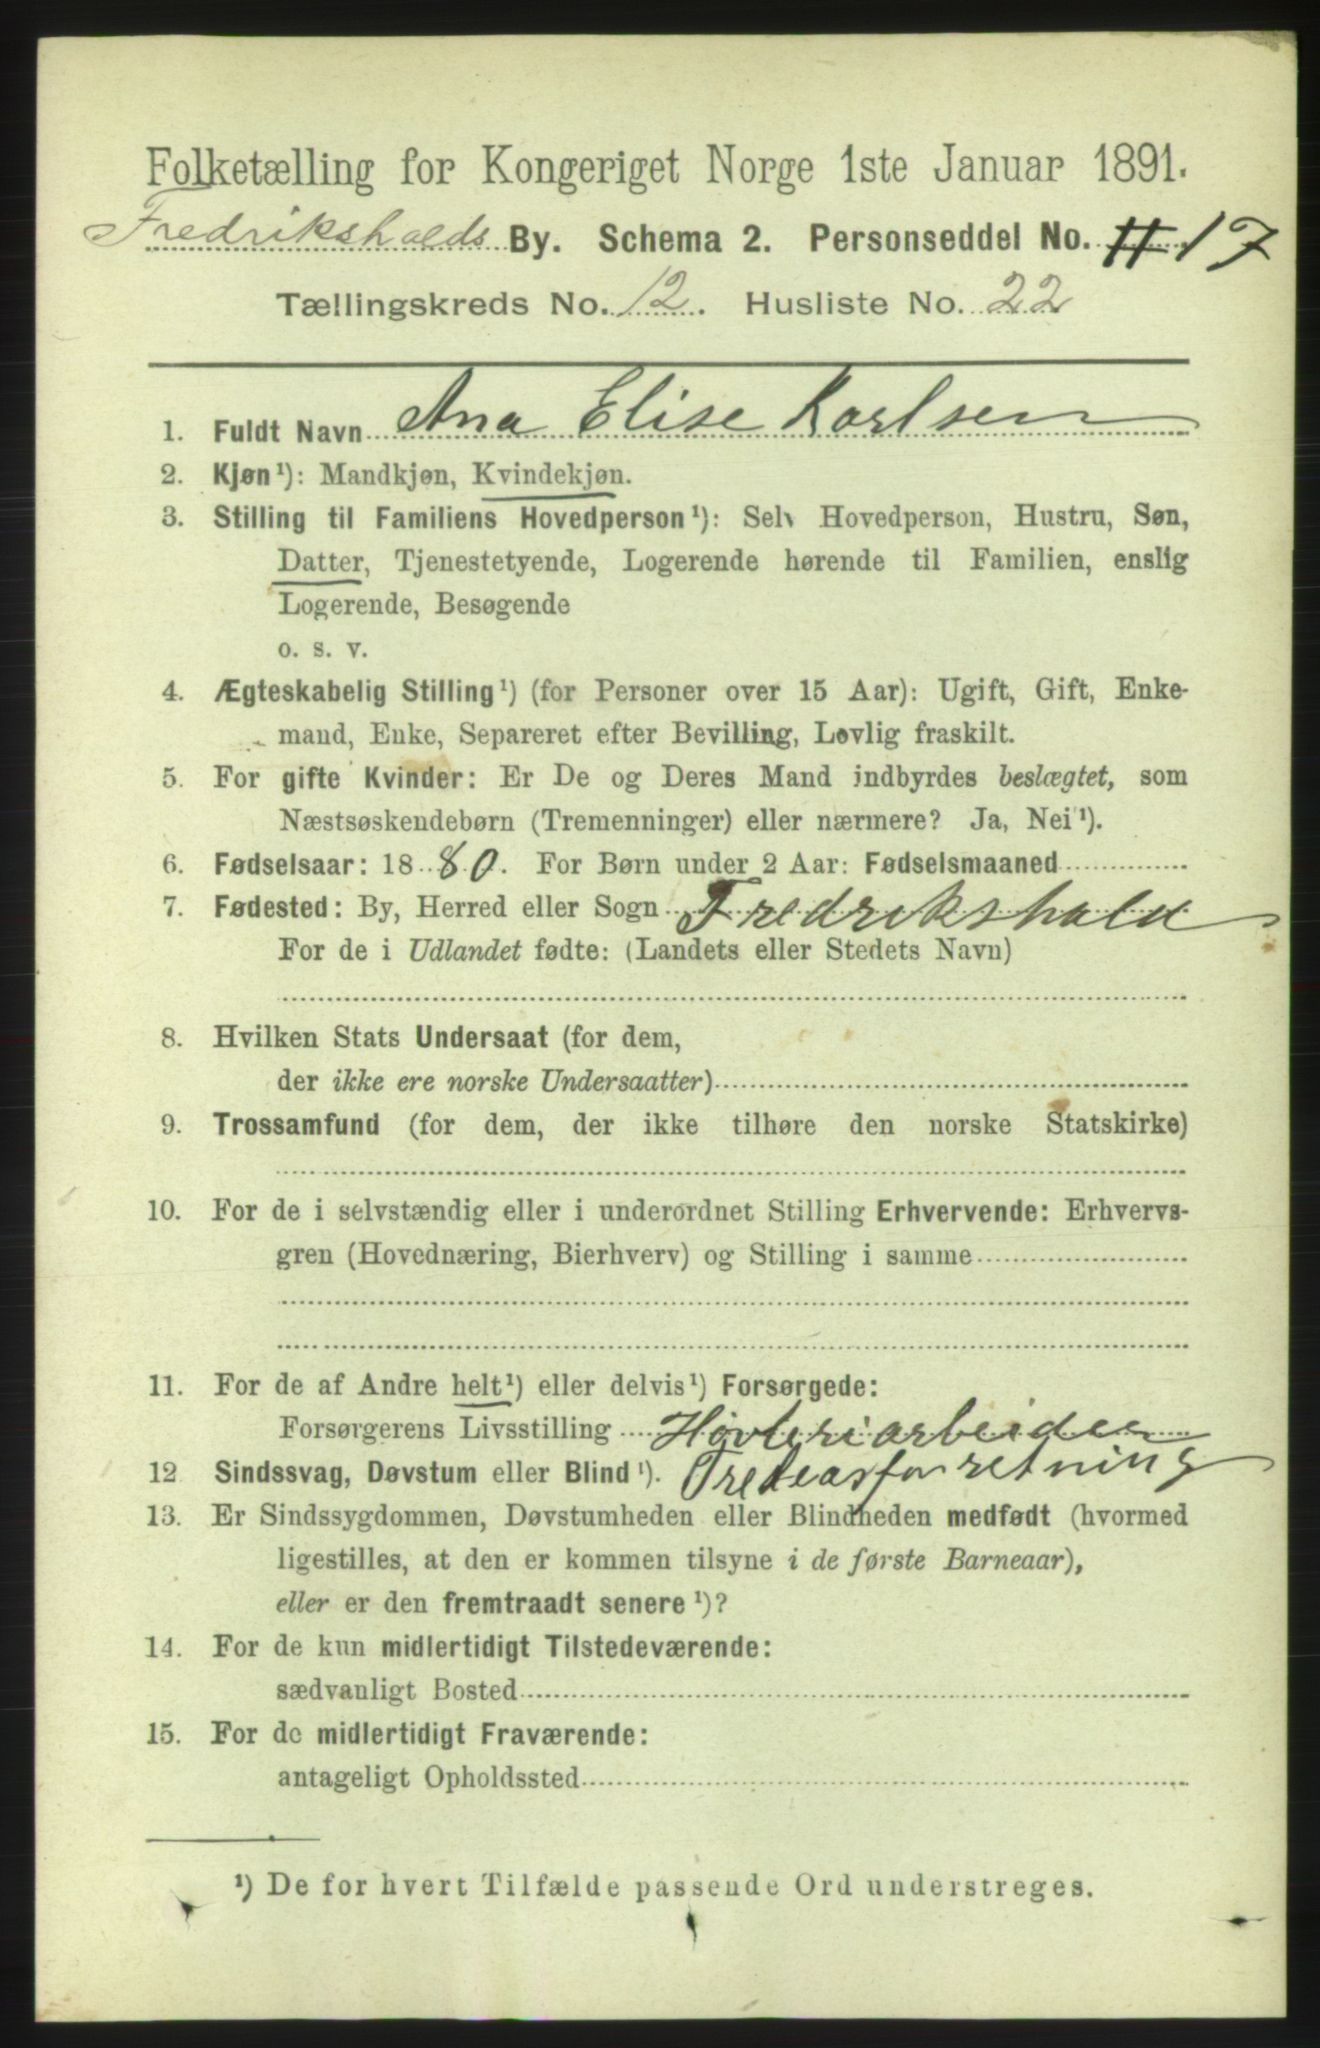 Folketælling for Kongeriget Norge 1ste Januar 1891.
Fredrikshalds By. Schema 2. Personseddel No. 11 17
Tællingskreds No. 12. Husliste No. 22
1. Fuldt Navn Ana Elise Karlsen
2. Kjøn¹): Mandkjøn, Kvindekjøn.
3. Stilling til Familiens Hovedperson¹): Selv Hovedperson, Hustru, Søn,
Datter, Tjenestetyende, Logerende hørende til Familien, enslig
Logerende, Besøgende
o. s. v.
4. Ægteskabelig Stilling¹) (for Personer over 15 Aar): Ugift, Gift, Enke-
mand, Enke, Separeret efter Bevilling, Lovlig fraskilt.
5. For gifte Kvinder: Er De og Deres Mand indbyrdes beslægtet, som
Næstsøskendebørn (Tremenninger) eller nærmere? Ja, Nei¹).
6. Fødselsaar: 1880. For Børn under 2 Aar: Fødselsmaaned
7. Fødested: By, Herred eller Sogn Fredrikshald
For de i Udlandet fødte: (Landets eller Stedets Navn)
8. Hvilken Stats Undersaat (for dem,
der ikke ere norske Undersaatter)
9. Trossamfund (for dem, der ikke tilhøre den norske Statskirke)
10. For de i selvstændig eller i underordnet Stilling Erhvervende: Erhvervs-
gren (Hovednæring, Bierhverv) og Stilling i samme
11. For de af Andre helt¹) eller delvis¹) Forsørgede:
Forsørgerens Livsstilling Høvleriarbeider
12 Sindssvag, Døvstum eller Blind¹). Trelasforretning
13. Er Sindssygdommen, Døvstumheden eller Blindheden medfødt (hvormed
ligestilles, at den er kommen tilsyne i de første Barneaar),
eller er den fremtraadt senere¹)?
14. For de kun midlertidigt Tilstedeværende:
sædvanligt Bosted
15. For de midlertidigt Fraværende:
antageligt Opholdssted
¹) De for hvert Tilfælde passende Ord understreges.